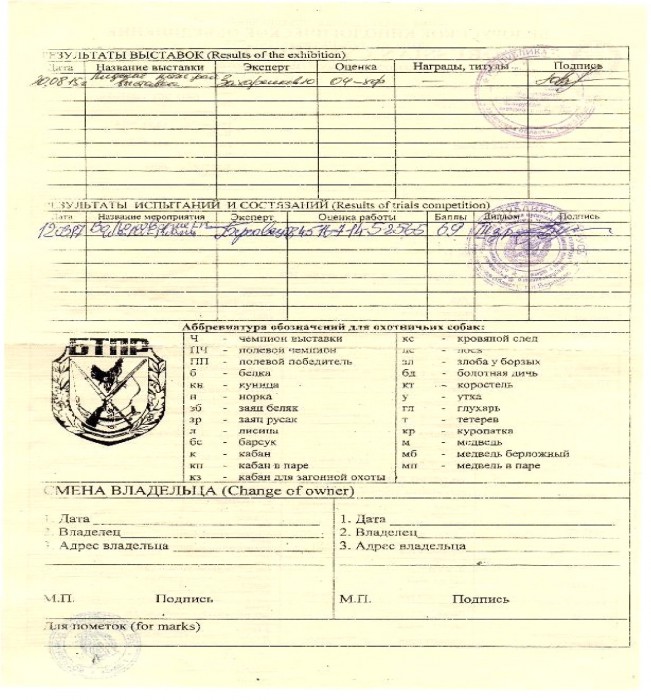 РЕЗУЛЬТАТЫ ВЫСТАВОК (Results of the exhibition)
Дата Название выставки Эксперт Оценка Награды, титулы Подпись
выставка
РЕЗУЛЬТАТЫ ИСПЫТАНИЙ И СОСТЯЗАНИЙ (Results of trials competition)
Дата Название мероприятия Эксперт Оценка работы Баллы Диплом Подпись
69
Аббревиатура обозначений для охотничьих собак:
БТПР
Ч - чемпион выставки
ПЧ - полевой чемпион
ПП - полевой победитель
б - белка
кн - куница
н - норка
зб - заяц беляк
зр - заяц русак
л - лисица
бс - барсук
к - кабан
кп - кабан в паре
кз - кабан для загонной охоты
кс - кровяной след
лс - лось
зл - злоба у борзых
бд - болотная дичь
кт - коростель
у - утка
гл - глухарь
т - тетерев
кр - куропатка
м - медведь
мб - медведь берложный
мп - медведь в паре
СМЕНА ВЛАДЕЛЬЦА (Change of owner)
1. Дата
2. Владелец
3. Адрес владельца
М.П. Подпись
1. Дата
2. Владелец
3. Адрес владельца
М.П. Подпись
Для пометок (for marks)